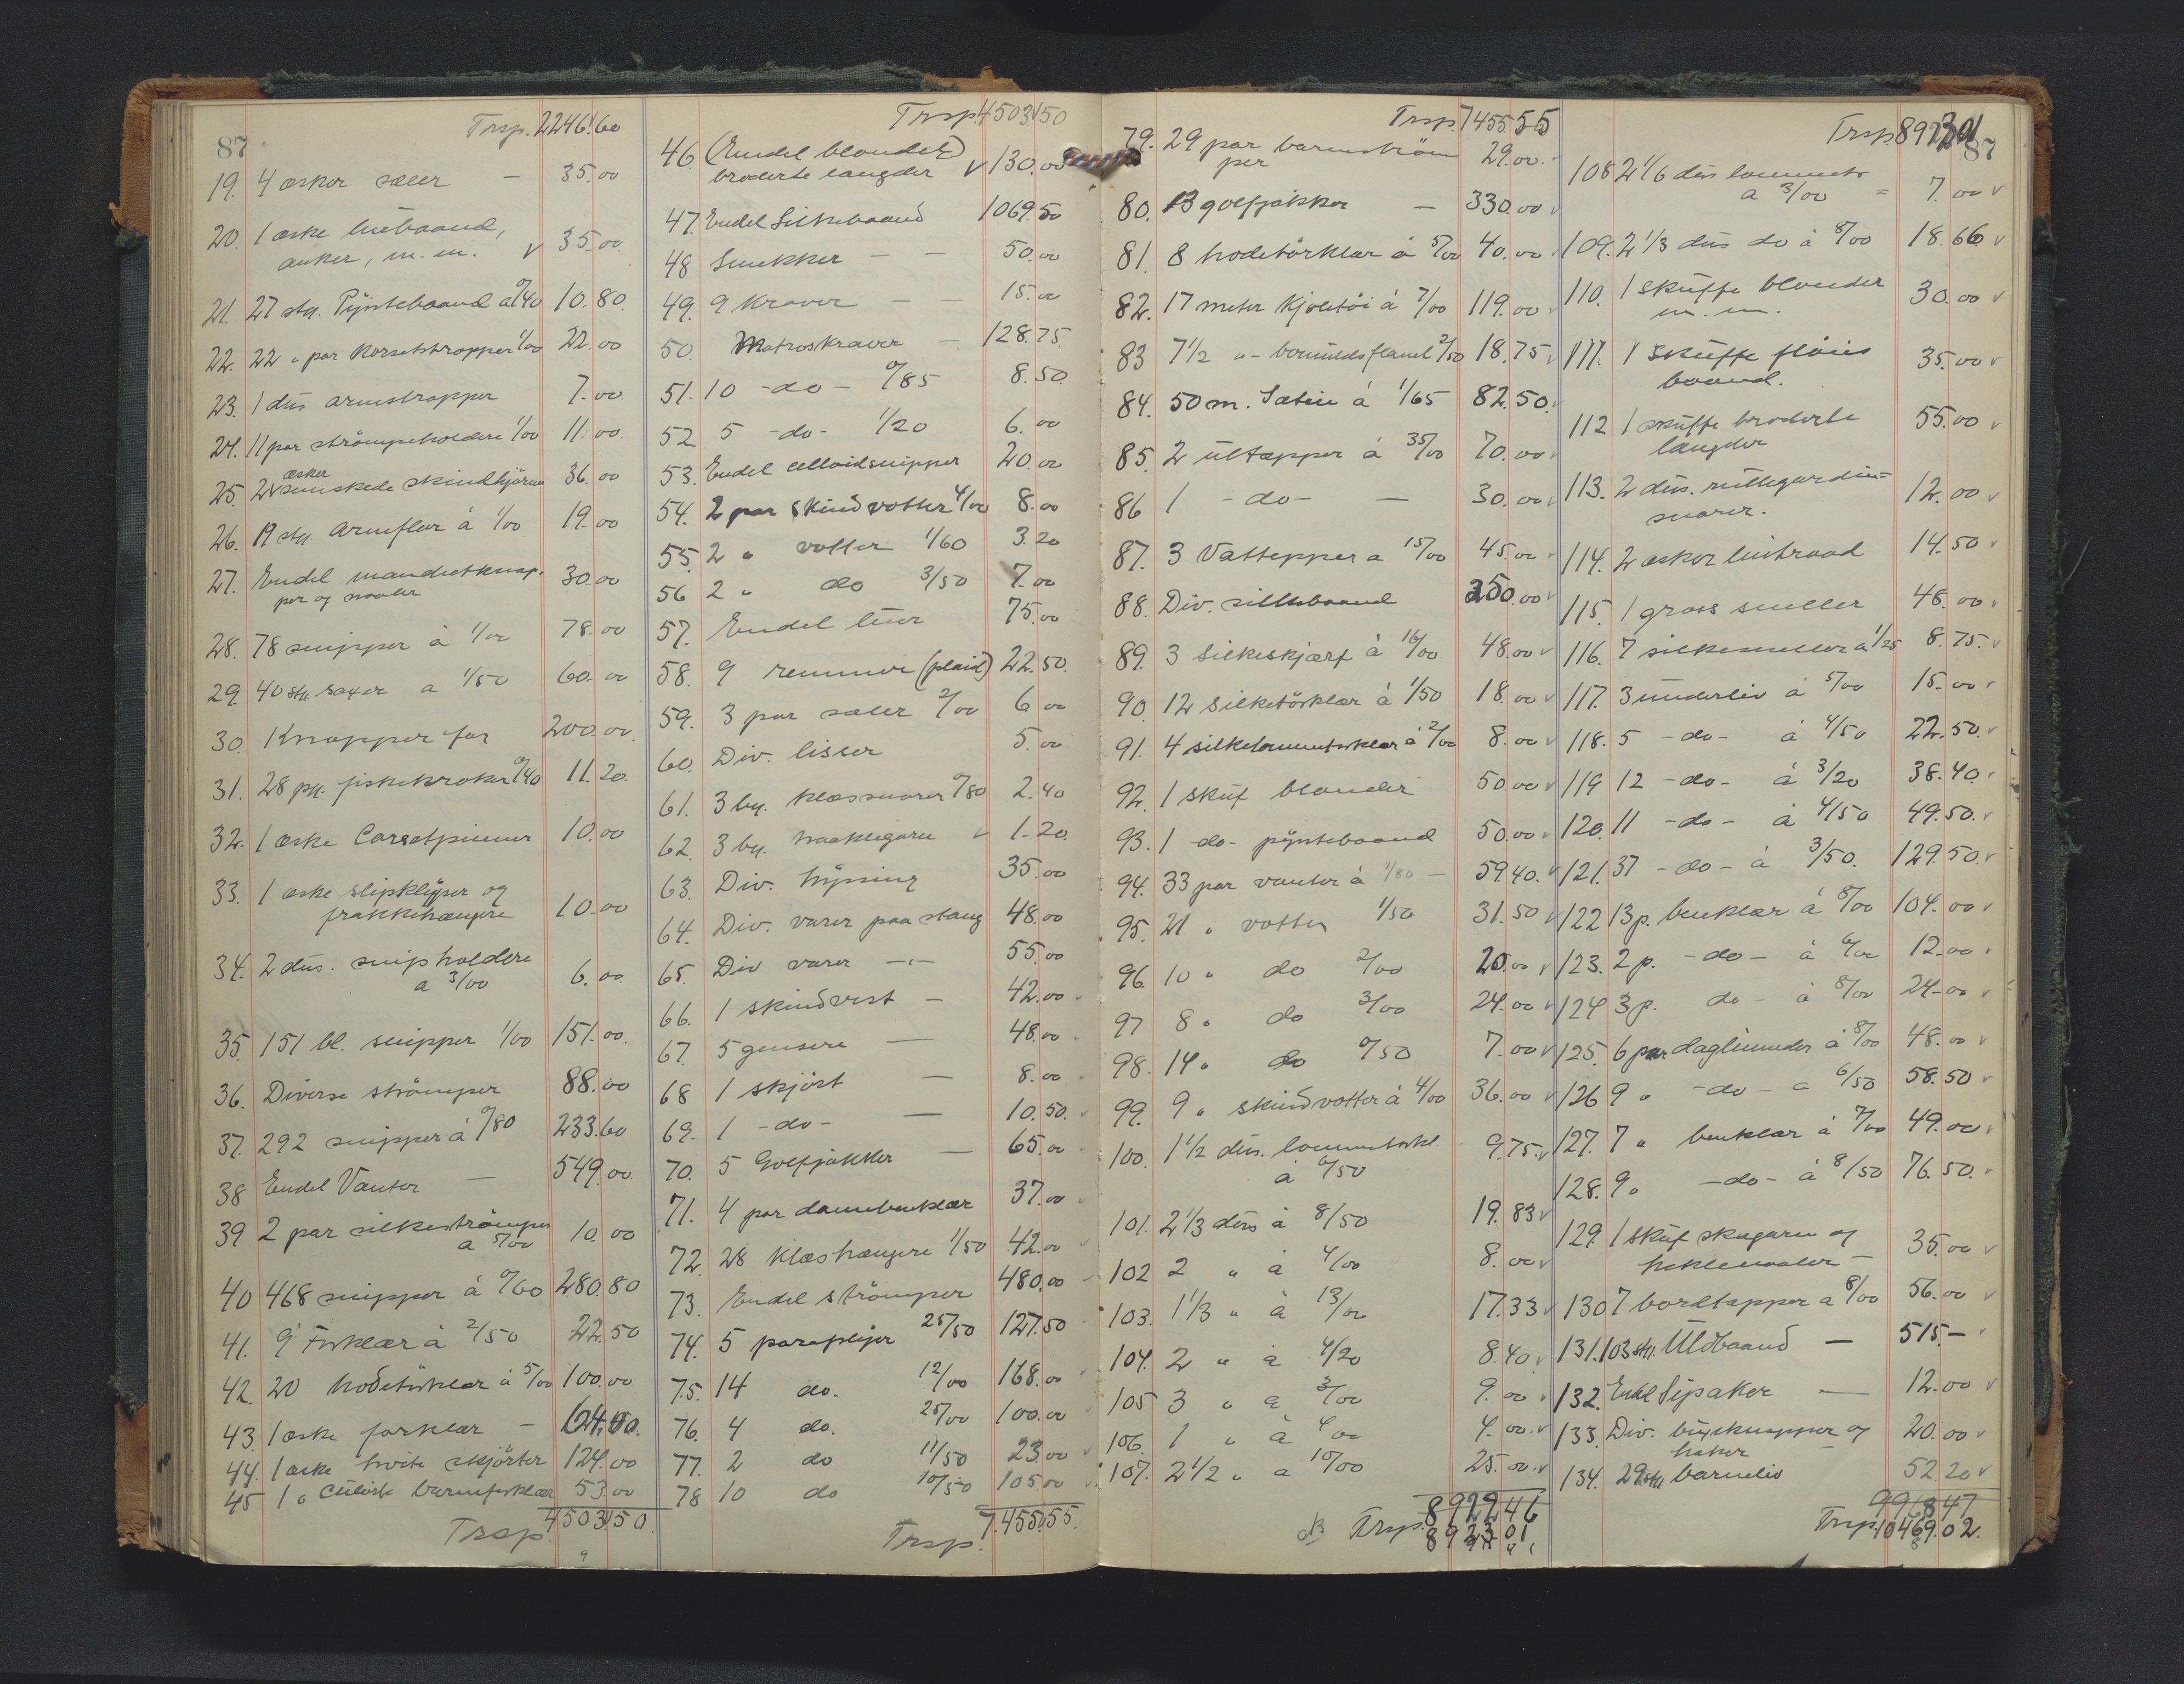 87
Trsp. 2246.60
19. 4 æsker sæler — 35.00
20. 1 æske
anker, m.m. v 35.00
21. 27 stg. Pynteboand a 0/40 10.80
22. 22 " par Korsetstropper 1/00 22.00
23. 1 dus armstropper 7.00
24. 11 par strömpeholdere 1/00 11.00
æsker
25. 2 v semskede skind 36.00
26. 19 stg armflor á 1/00 19.00
27. Endel manchetknap-
per og naaler 30.00
28. 78 snipper á 1/00 78.00
29. 40 stk. saxer a 1/50 60.00
30. Knapper for 200.00
31. 28 pk. fiskekroker 0/40 11.20
32. 1 æske Corsetpinner 10.00
33. 1 æske slipsklyper og
frakkehængere 10.00
34. 2 dus. snipholdere
a 3/00 6.00
35. 151 bl. snipper 1/00 151.00
36. Diverse strömper 88.00
37. 292 snipper á 0/80 233.60
38 Endel Vanter — 549.00
39 2 par silkeströmper
a 5/00 10.00
40 468 snipper á 0/60 280.80
41. 9 Forklær á 2/50 22.50
42. 20 hodetörklær á 5/00 100.00
43. 1 æske forklær —
44. 1 æske hvite skjörter 124.00
45 1 " barneforklær 53.00
Trsp. 4503.50
Trsp. 4503.50
46. (Endel blonder)
broderte længder v 130.00
47. Endel Silkebaand 1069.50
48 Smekker — — 50.00
49. 9 Kraver — — 15.00
50. Matroskraver — 128.75
51. 10 -do- 0/85 8.50
52 5 -do- 1/20 6.00
53. Endel celloidsnipper 20.00
54. 2 par Skindvotter 4/00 8.00
55. 2 " votter 1/60 3.20
56 2 " do 3/50 7.00
57. Endel luer 75.00
58. 9 remmer (plaid) 22.50
59. 3 par sæler 2/00 6.00
60. Div. lisser 5.00
61. 3 by. klæssnorer 0/80 2.40
62. 3 by. hæklegarn v 1.20
63. Div. hysning 35.00
64. Div. varer paa stang 48.00
65. Div varer —"— 55.00
66. 1 skindvest — 42.00
67. 5 gensere — 48.00
68 1 skjört — 8.00
69. 1 -do- — 10.50
70. 5 Golfjakker — 65.00
71. 4 par damebenklær 37.00
72. 28 klæshængere 1/50 42.00
73. Endel strömper 480.00
74. 5 paraplyer 25/50 127.50
75. 14 do. 12/00 168.00
76. 4 do. 25/00 100.00
77. 2 do 11/50 23.00
78 10 do 10/50 105.00
Trsp. 7.455.55
Trsp. 7455.55
79. 29 par barneström
per 29.00
80. 13 golfjakker — 330.00
81. 8 hodetörklær á 5/00 40.00
82. 17 meter Kjoletöi á 7/00 119.00
83 7 1/2 "- bomuldsflanel 2/50 18.75
84. 50 m. Satin á 1/65 82.50
85. 2 ultæpper á 35/00 70.00
86 1 -do- — 30.00
87. 3 Vattepper a 15/00 45.00
88. Div. silkebaand 250.00
89. 3 Silkeskjærf á 16/00 48.00 v
90. 12 silketörklær á 1/50 18.00 v
91. 4 silkelommetörklær á 2/00 8.00 v
92. 1 skuf blonder 50.00 v
93. 1 -do- pynteboand 50.00 v
94. 33 par vanter á 1/80 — 59.40 v
95. 21 " votter 1/50 31.50 v
96. 10 " do 2/00 20.00 v
97 8 " do 3/00 24.00 v
98. 14 " do 0/50 7.00 v
99. 9 " skindvotter á 4/00 36.00 v
100. 1 1/2 dus. lommetörkl.
á 6/50 9.75 v
101. 2 1/3 dus á 8/50 19.83 v
102 2 " á 4/00 8.00 v
103. 1 1/3 " á 13/00 17.33 v
104. 2 " á 4/20 8.40 v
105 3 " a 3/00 9.00 v
106. 1 " á 4/00 4.00 v
107. 2 1/2 " a 10/00 25.00 v
Trsp. 8922.46
8923.01
Trsp. 8923.01
87
108 2 1/6 dus lommetr
a 3/00 = 7.00 v
109. 2 1/3 dus do á 8/00 18.66 v
110. 1 skuffe blonder
m. m. 30.00 v
111. 1 skuffe flöiels
baand. 35.00 v
112 1 skuffe broderte
længder 55.00 v
113. 2 dus. rullegardin-
snorer. 12.00 v
114. 2 æsker lintraad 14.50 v
115. 1 gross sneller 48.00 v
116. 7 silkesneller á 1/25 8.75 v
117. 3 underliv á 5/00 15.00 v
118. 5 -do- á 4/50 22.50 v
119 12 -do- á 3/20 38.40 v
120. 11 -do- á 4/50 49.50 v
121. 37 -do- á 3/50. 129.50 v
122 13 p. benklær á 8/00 104.00 v
123. 2 p. -do- á 6/00 12.00 v
124 3 p. do - á 8/00 24.00 v
125. 6 par daglinunder á 8/00 48.00 v
126 9 " -do- a 6/50 58.50 v
127. 7 " benklær á 7/00 49.00 v
128. 9 " -do- á 8/50 76.50 v
129. 1 skuf skogarn og
heklenaaler — 35.00 v
130 7 bordtæpper a 8/00 56.00 v
131. 103 stk. Uldbaand — 515.— v
132. — 12.00 v
133. Div. buxeknapper og
haker — 20.00 v
134. 29 stk barneliv 52.20 v
9968.47
Trsp. 10469.02.